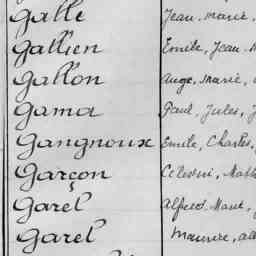 Galle Jean-Marie,
Gallien Emile, Jean-M
Gallon Ange, Marie,
Gama Paul, Jules, J
Gangnoux Emile, Charles,
Garçon Célestin, Math
Garel Alfred, Marie, J
Garel Maurice, Al